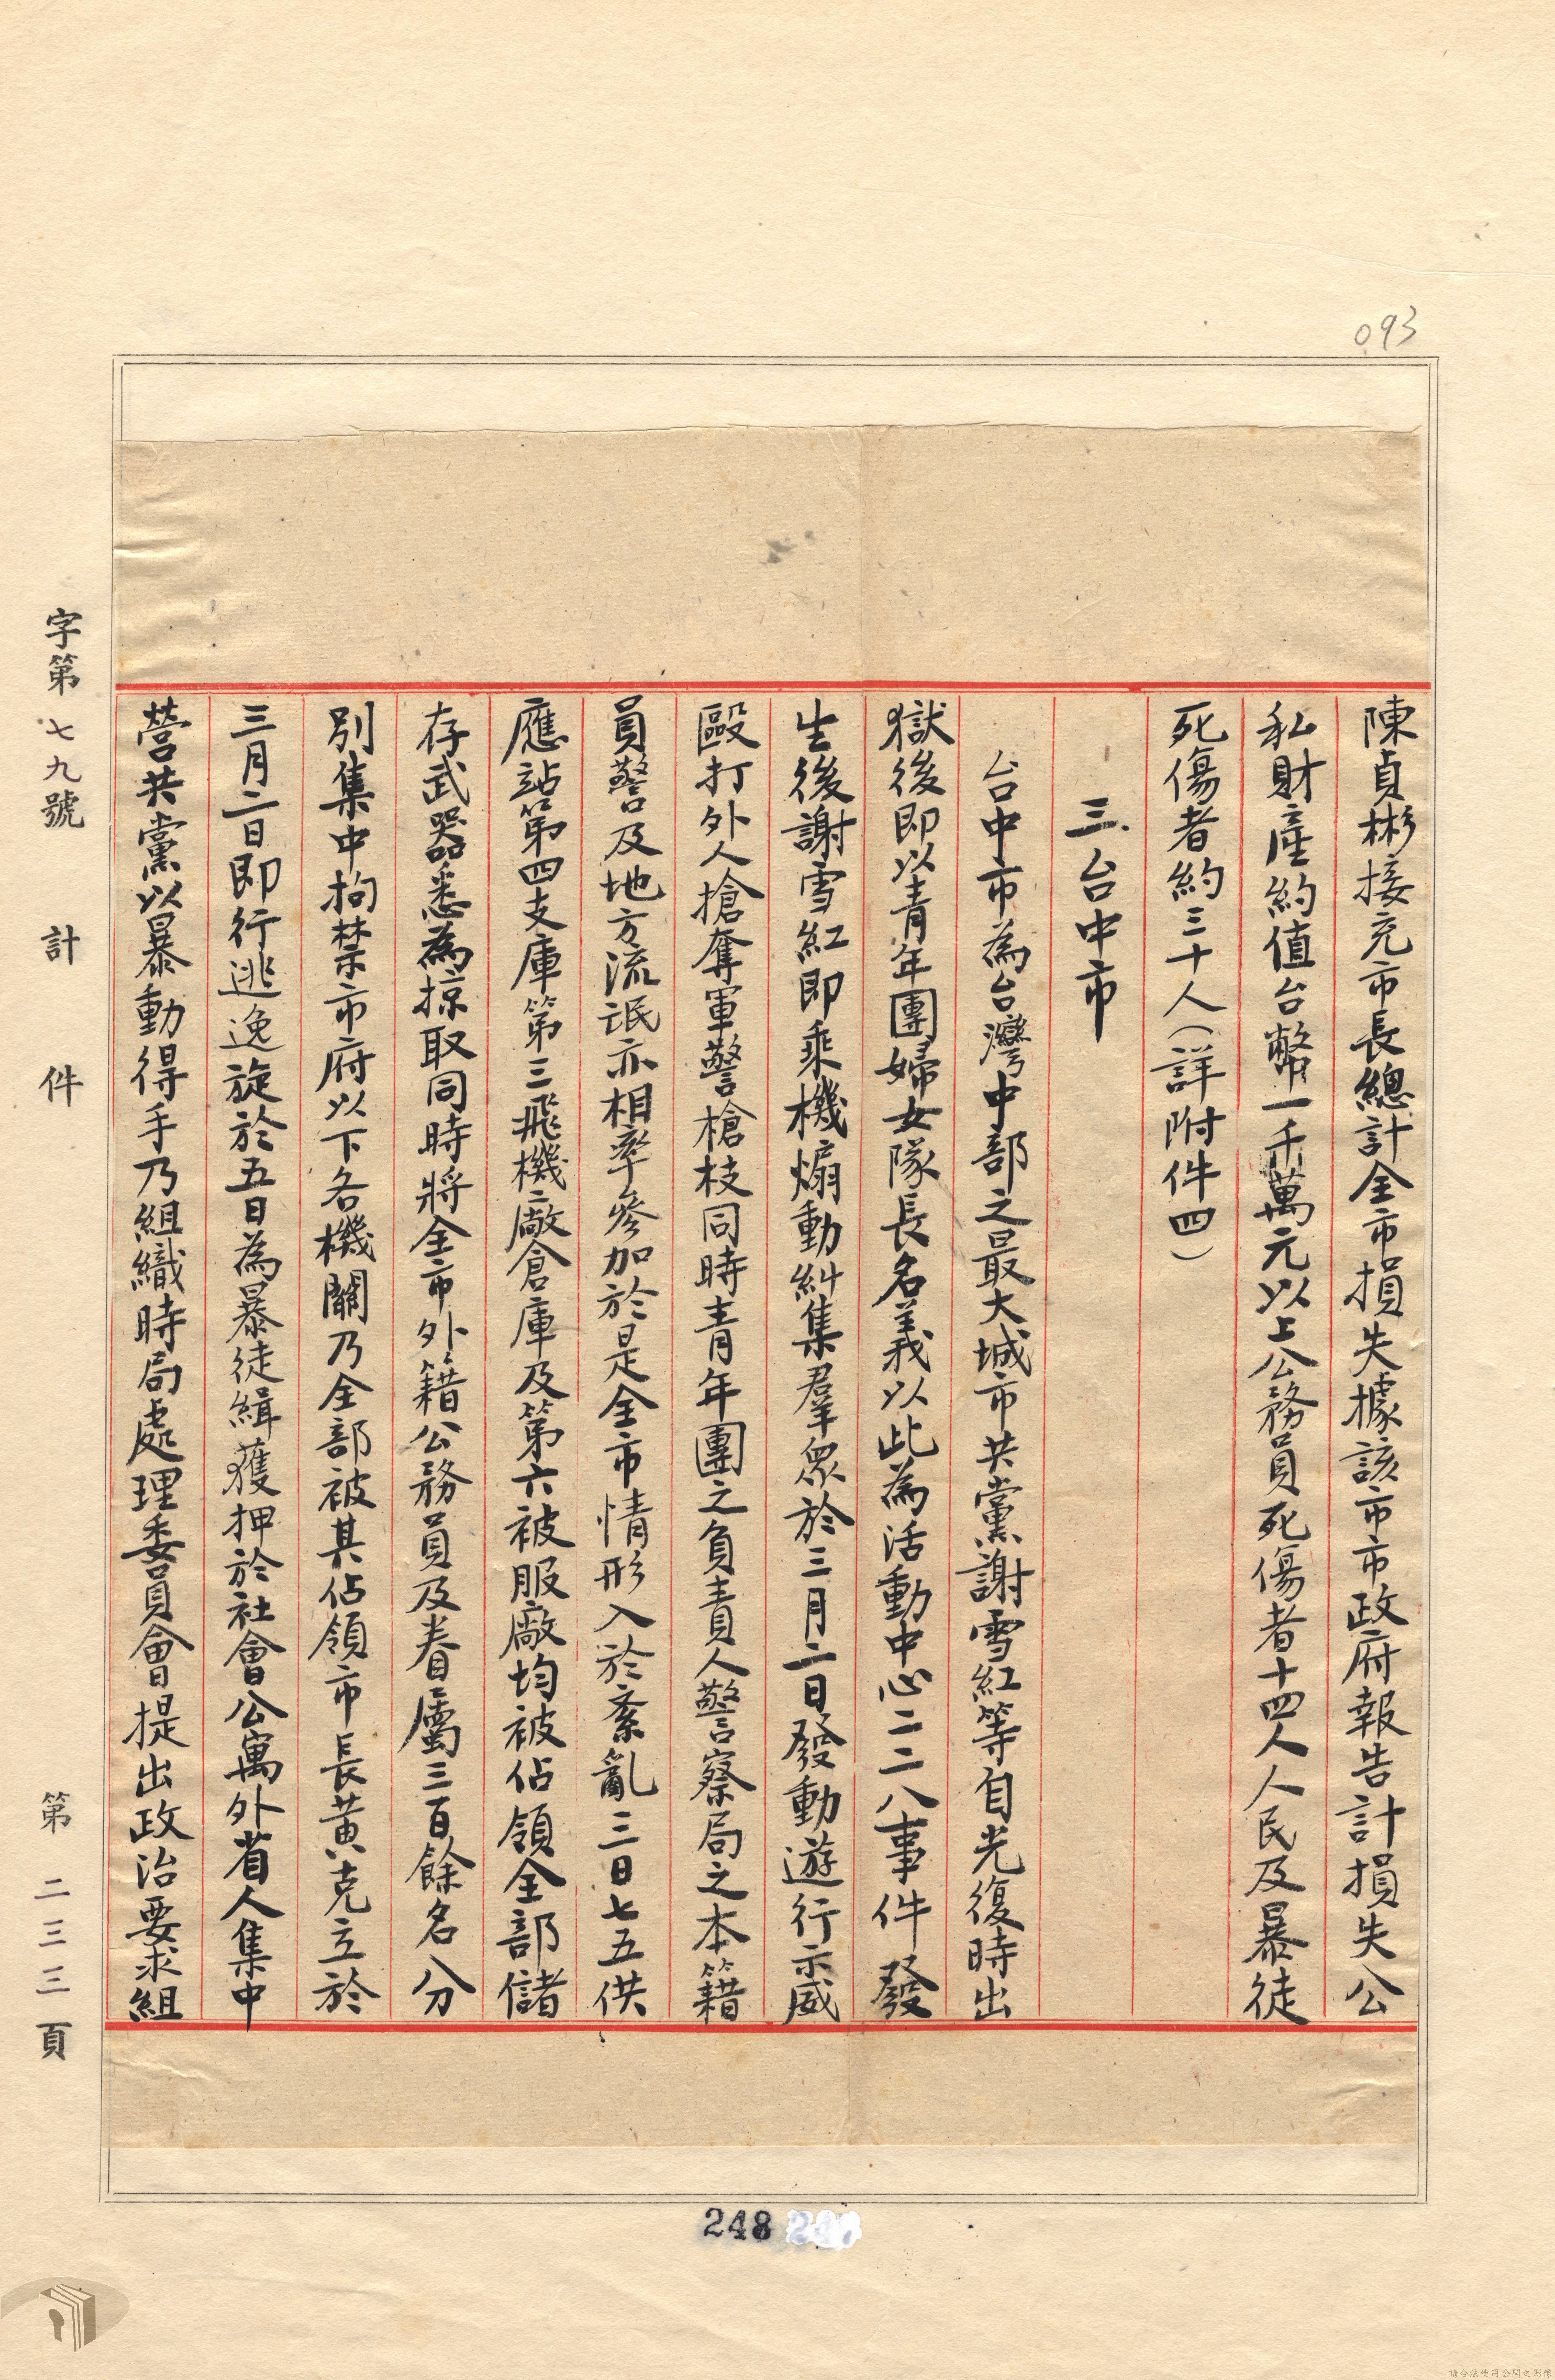 093
陳貞彬接充市長總計全市損失據該市市政府報告計損失公
私財產約值台幣一千萬元以上公務員死傷者十四人人民及暴徒
死傷者約三十人（詳附件四）
三、台中市
台中市為台灣中部之最大城市共黨謝雪紅等自光復時出
獄後即以青年團婦女隊長名義以此為活動中心二二八事件發
生後謝雪紅即乘機煽動糾集羣眾於三月二日發動遊行示威
毆打外人搶奪軍警槍枝同時青年團之負責人警察局之本籍
員警及地方流氓亦相率參加於是全市情形入於紊亂三日七五供
應站第四支庫第三飛機廠倉庫及第六被服廠均被佔領全部儲
存武器悉為掠取同時將全市外籍公務員及眷屬三百餘名分
別集中拘禁市府以下各機關乃全部被其佔領市長黃克立於
三月二日即行逃逸旋於五日為暴徒緝獲押於社會公寓外省人集中
營共黨以暴動得手乃組織時局處理委員會提出政治要求組
字第七九號 計 件 第二三三頁
248
請合法使用公開之影像